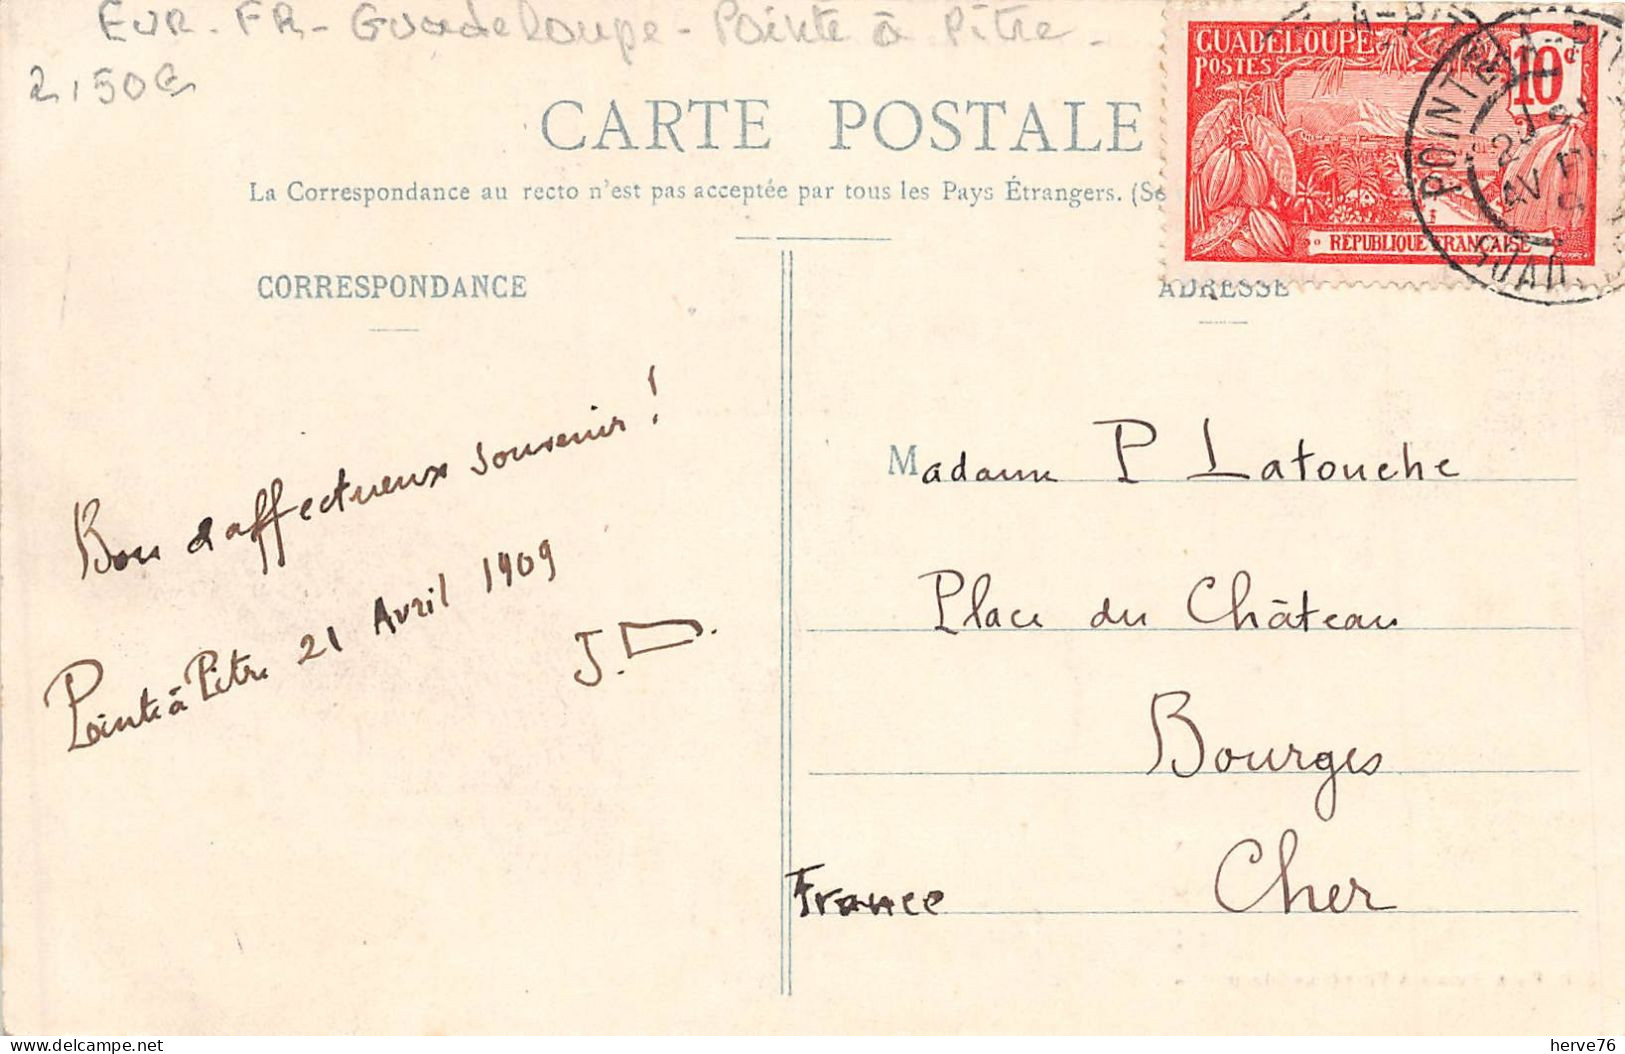 EUR - FR - Guadeloupe - Pointe à Pitre -
2,50€
CARTE POSTALE
La Correspondance au recto n'est pas acceptée par tous les Pays Étrangers. (Se
GUADELOUPE
POSTES
10c
RÉPUBLIQUE FRANÇAISE
POINTE-A-PIT
GUAD
21
AV
CORRESPONDANCE
ADRESSE
Bon & affectueux souvenir!
Pointe à Pitre 21 Avril 1909
J.D.
Madame P Latouche
Place du Château
Bourges
Cher
France
herve76